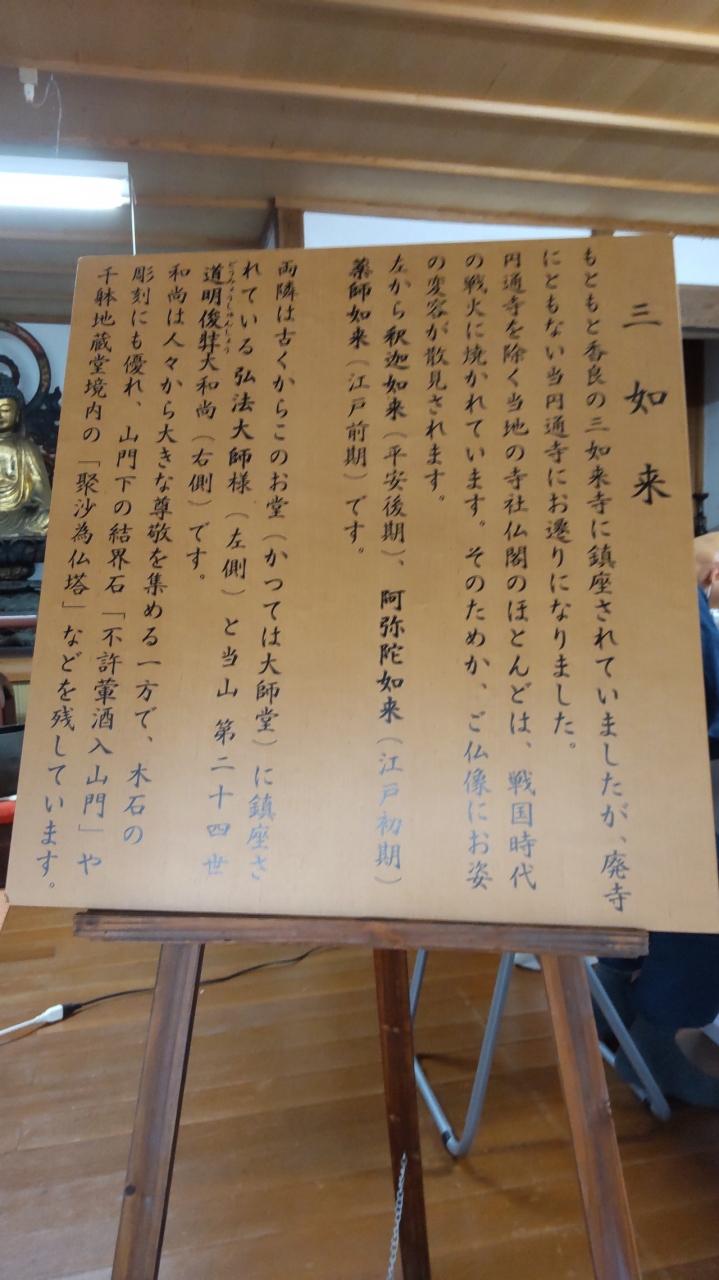 三如来
もともと香良の三如来寺に鎮座されていましたが、廃寺
にともない当円通寺にお遷りになりました。
円通寺を除く当地の寺社仏閣のほとんどは、戦国時代
の戦火に焼かれています。そのためか、ご仏像にお姿
の変容が散見されます。
左から釈迦如来(平安後期)、阿弥陀如来(江戸初期)
薬師如来(江戸前期)です。
両隣は古くからこのお堂(かつては大師堂)に鎮座さ
れている弘法大師様(左側)と当山 第二十四世
どうみょうしゅんしょう
道明俊大和尚(右側)です。
和尚は人々から大きな尊敬を集める一方で、木石の
彫刻にも優れ、山門下の結界石「不許葷酒入山門」や
千躰地蔵堂境内の「聚沙為仏塔」などを残しています。